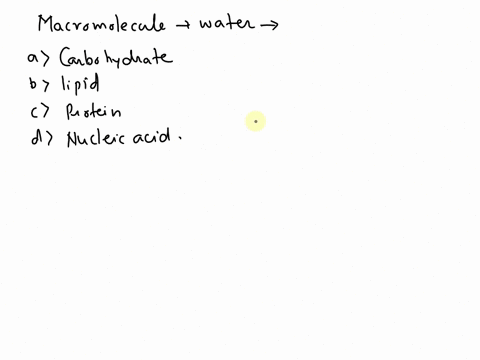 Macromolecule → water →
a> Carbohydrate
b> lipid
c> Protein
d> Nucleic acid.